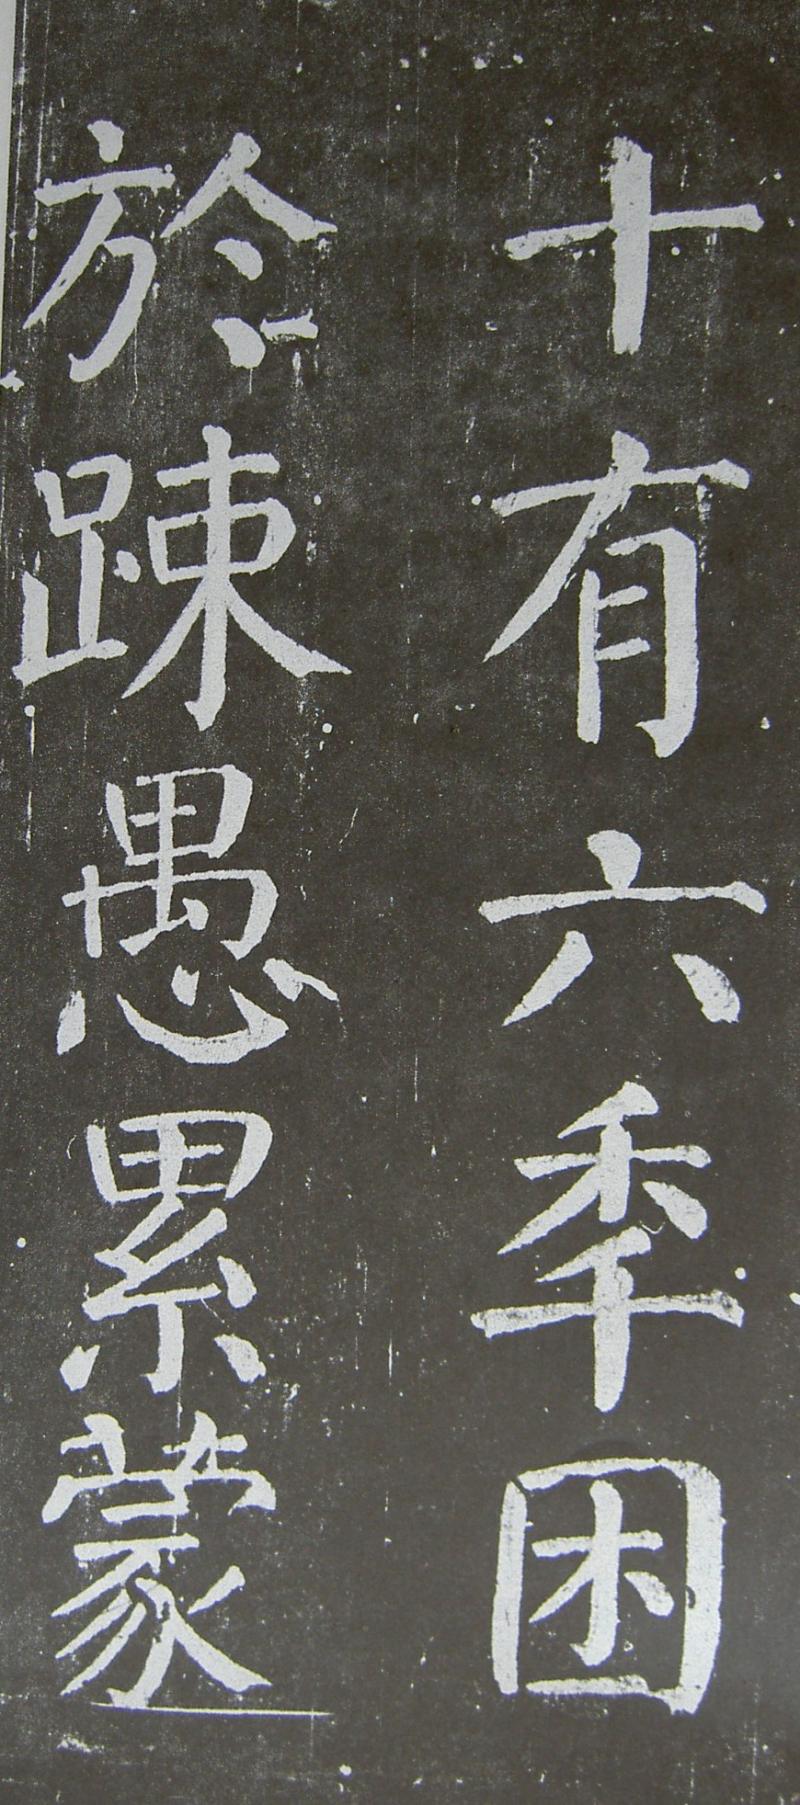 十有六季困
於踈愚累蒙